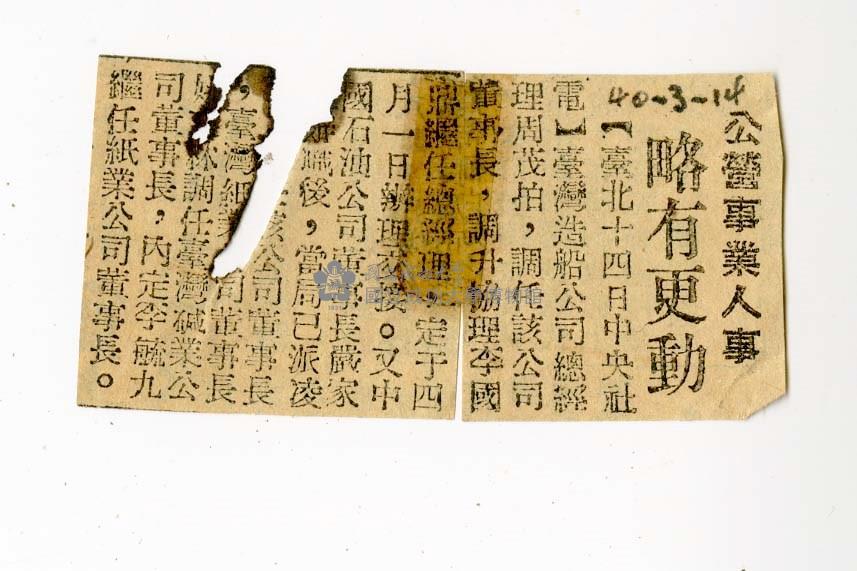 公營事業人事
略有更動
40-3-14
【臺北十四日中央社
電】臺灣造船公司總經
理周茂拍，調任該公司
董事長，調升協理李國
鼎繼任總經理，定于四
月一日辦理交接。又中
國石油公司董事長嚴家
辭職後，當局已派凌
該公司董事長
，臺灣紙業 司董事長
林調任臺灣碱業公
司董事長，內定李毓九
繼任紙業公司董事長。